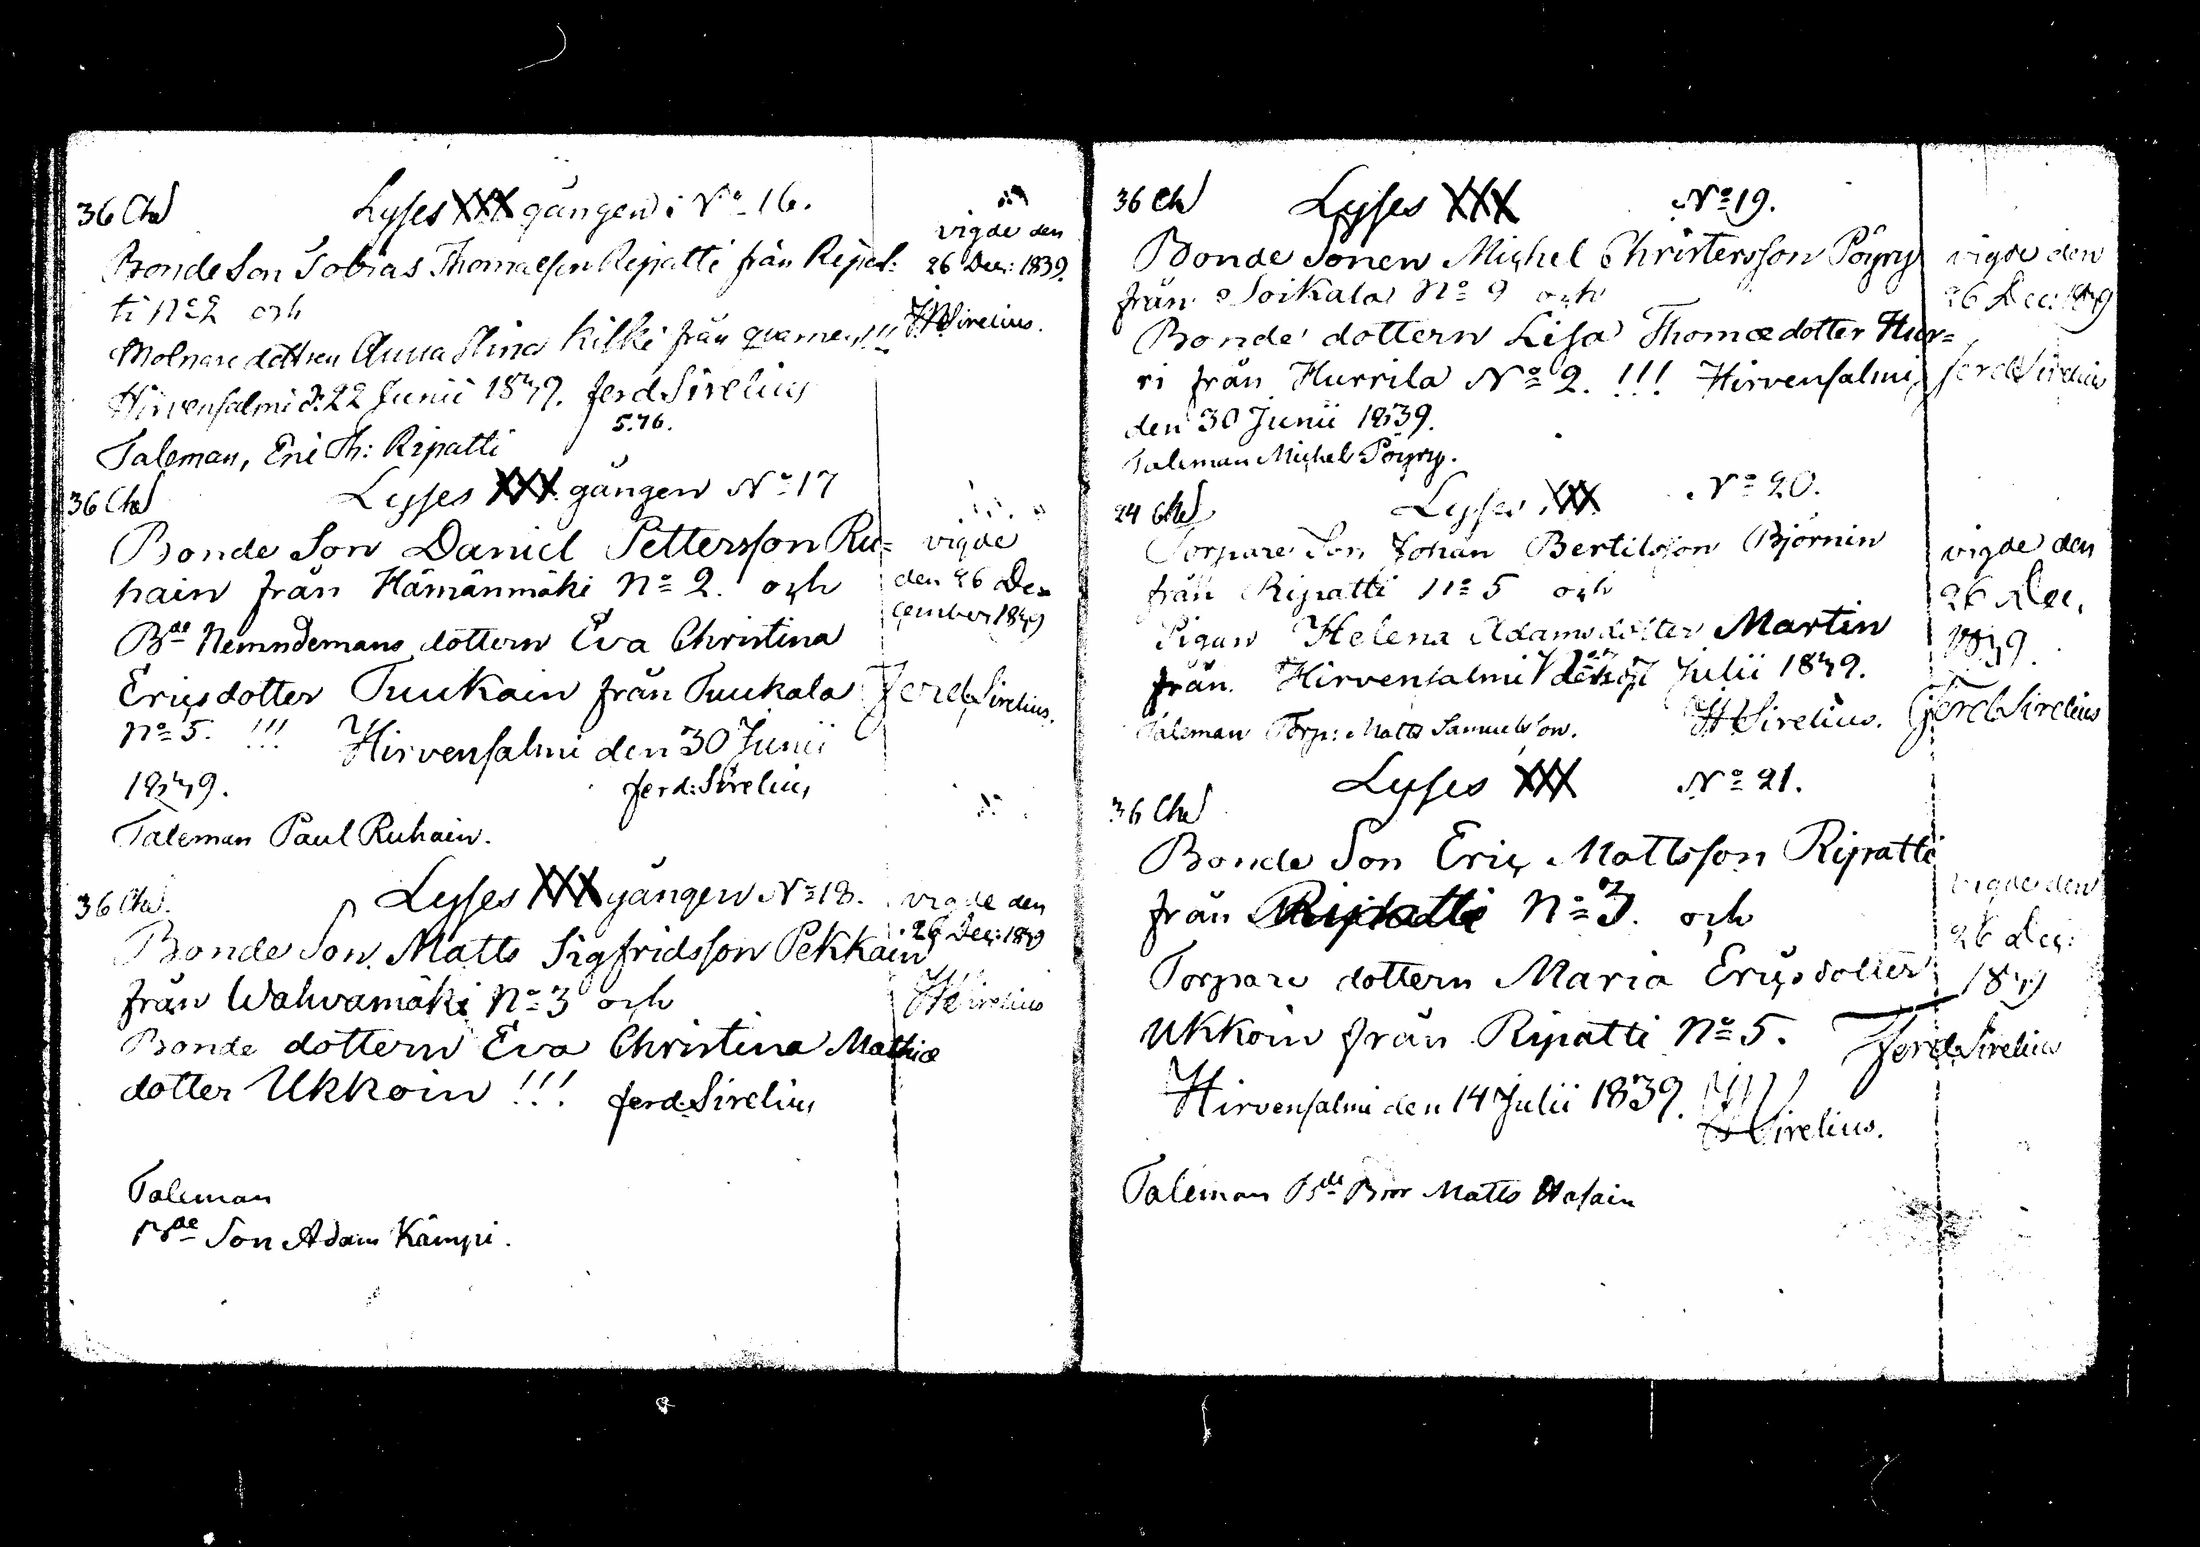 36 Ch
Lyses XXX gången i No 16.
Bonde Son Tobias Thomasson Ripatti från Ripat:
ti No 2 och
Molnare dottren Anna Stina Kilki från quarnen !!!
Hirvensalmi d: 22 Junii 1839. Ferd Sirelius
576.
Taleman, Eric Th: Ripatti
vigde den
26 Dec: 1839.
Sirelius.
36 Ch
Lyses XXX gången No 17
Bonde Son Daniel Pettersson Ru=
hain från Hämänmäki No 2. och
Bde Nemndemans dottern Eva Christina
Ericsdotter Tuukain från Tuukala
No 5. !!! Hirvensalmi den 30 Junii
1839. Ferd: Sirelius
Taleman Paul Ruhain.
vigde
den 26 De=
cember 1839
Ferd Sirelius.
36 Ch.
Lyses XXX gången No 18.
Bonde Son Matts Sigfridsson Pekkain
från Wahvamäki No 3 och
Bonde dottern Eva Christina Mathiæ
dotter Ukkoin !!! Ferd: Sirelius
Taleman
Bde Son Adam Kämpi.
vigde den
26 Dec: 1839
Sirelius
36 Ch
Lyses XXX No 19.
Bonde Sonen Michel Christersson Pöyry
från Soikala No 9 och
Bonde dottern Lisa Thomædotter Hur=
ri från Hurrila No 2. !!! Hirvensalmi
den 30 Junii 1839.
Taleman Michel Pöyry.
vigde den
26 Dec: 1839
Ferd Sirelius
24 Ch
Lyses XXX No 20.
Torpare Son Johan Bertilsson Björnin
från Ripatti No 5 och
Pigan Helena Adamsdotter Martin
från Hirvensalmi den Julii 1839.
Sirelius.
Taleman Torp: Matts Samuelsson.
vigde den
26 Dec.
1839.
Ferd Sirelius
36 Ch
Lyses XXX No 21.
Bonde Son Eric Mattsson Ripatti
från Ripatti No 3. och
Torpare dottern Maria Ericsdotter
Ukkoin från Ripatti No 5.
Hirvensalmi den 14 Julii 1839. !!!
Sirelius.
Taleman Bde Bror Matts Hasain
vigde den
26 Dec:
1839
Ferd Sirelius